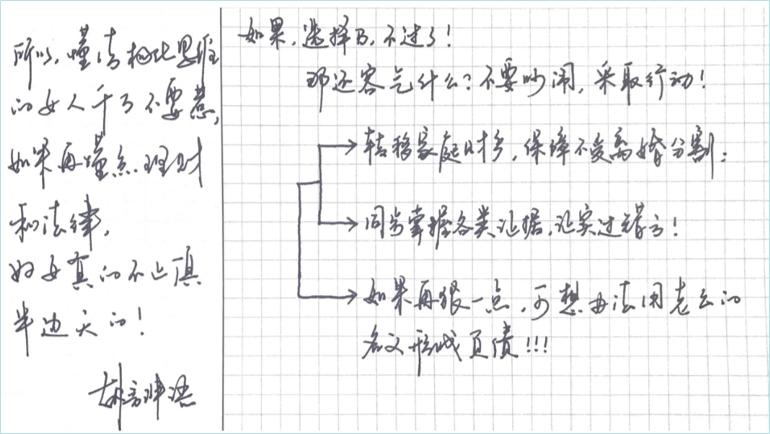 所以,懂结构化思维
的女人千万不要惹,
如果再懂点理财
和法律,
妇女真的不止顶
半边天的!
如果,选择B,不过了!
那还客气什么?不要吵闹,采取行动!
转移家庭财产,保障不受离婚分割;
同步掌握各类证据,证实过错方!
如果再狠一点,可想办法用老公的
名义形成负债!!!